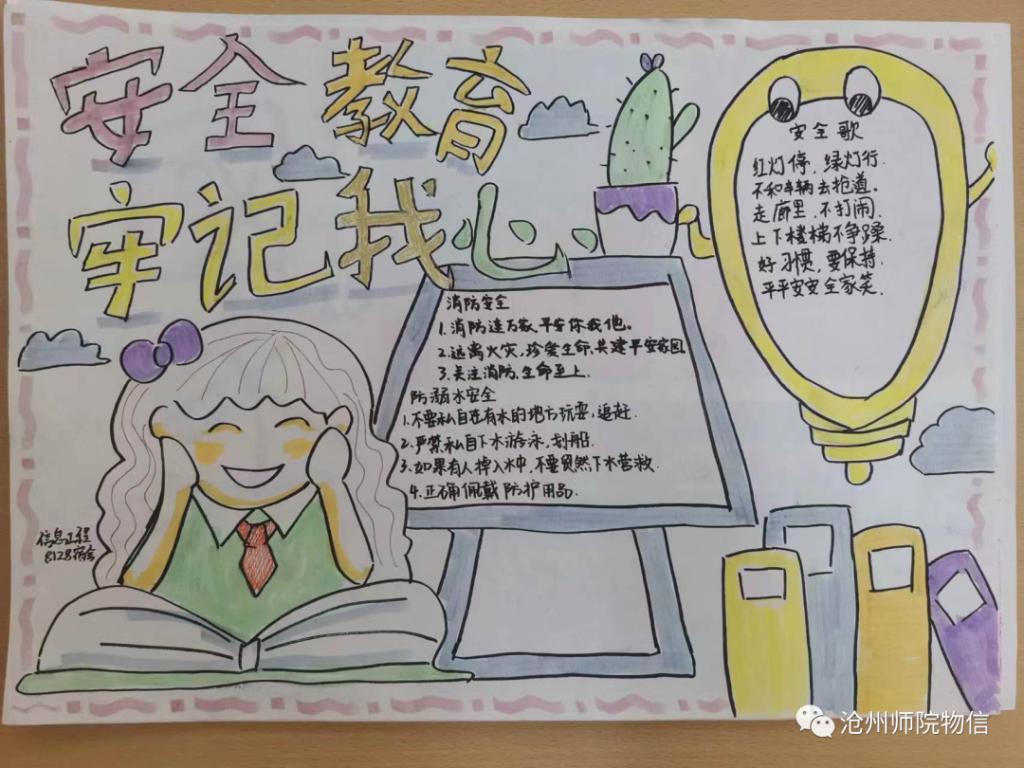 安全教育
牢记我心
安全歌
红灯停,绿灯行.
不和车辆去抢道。
走廊里,不打闹.
上下楼梯不争躁.
好习惯,要保持.
平平安安全家笑.
消防安全
1.消防连万家,平安你我他。
2.远离火灾,珍爱生命,共建平安家园
3.关注消防,生命至上.
防溺水安全
1.不要私自在有水的地方玩耍,追赶.
2.严禁私自下水游泳,划船.
3.如果有人掉入水中,不要贸然下水营救.
4.正确佩戴防护用品.
信息工程
8128宿舍
沧州师院物信